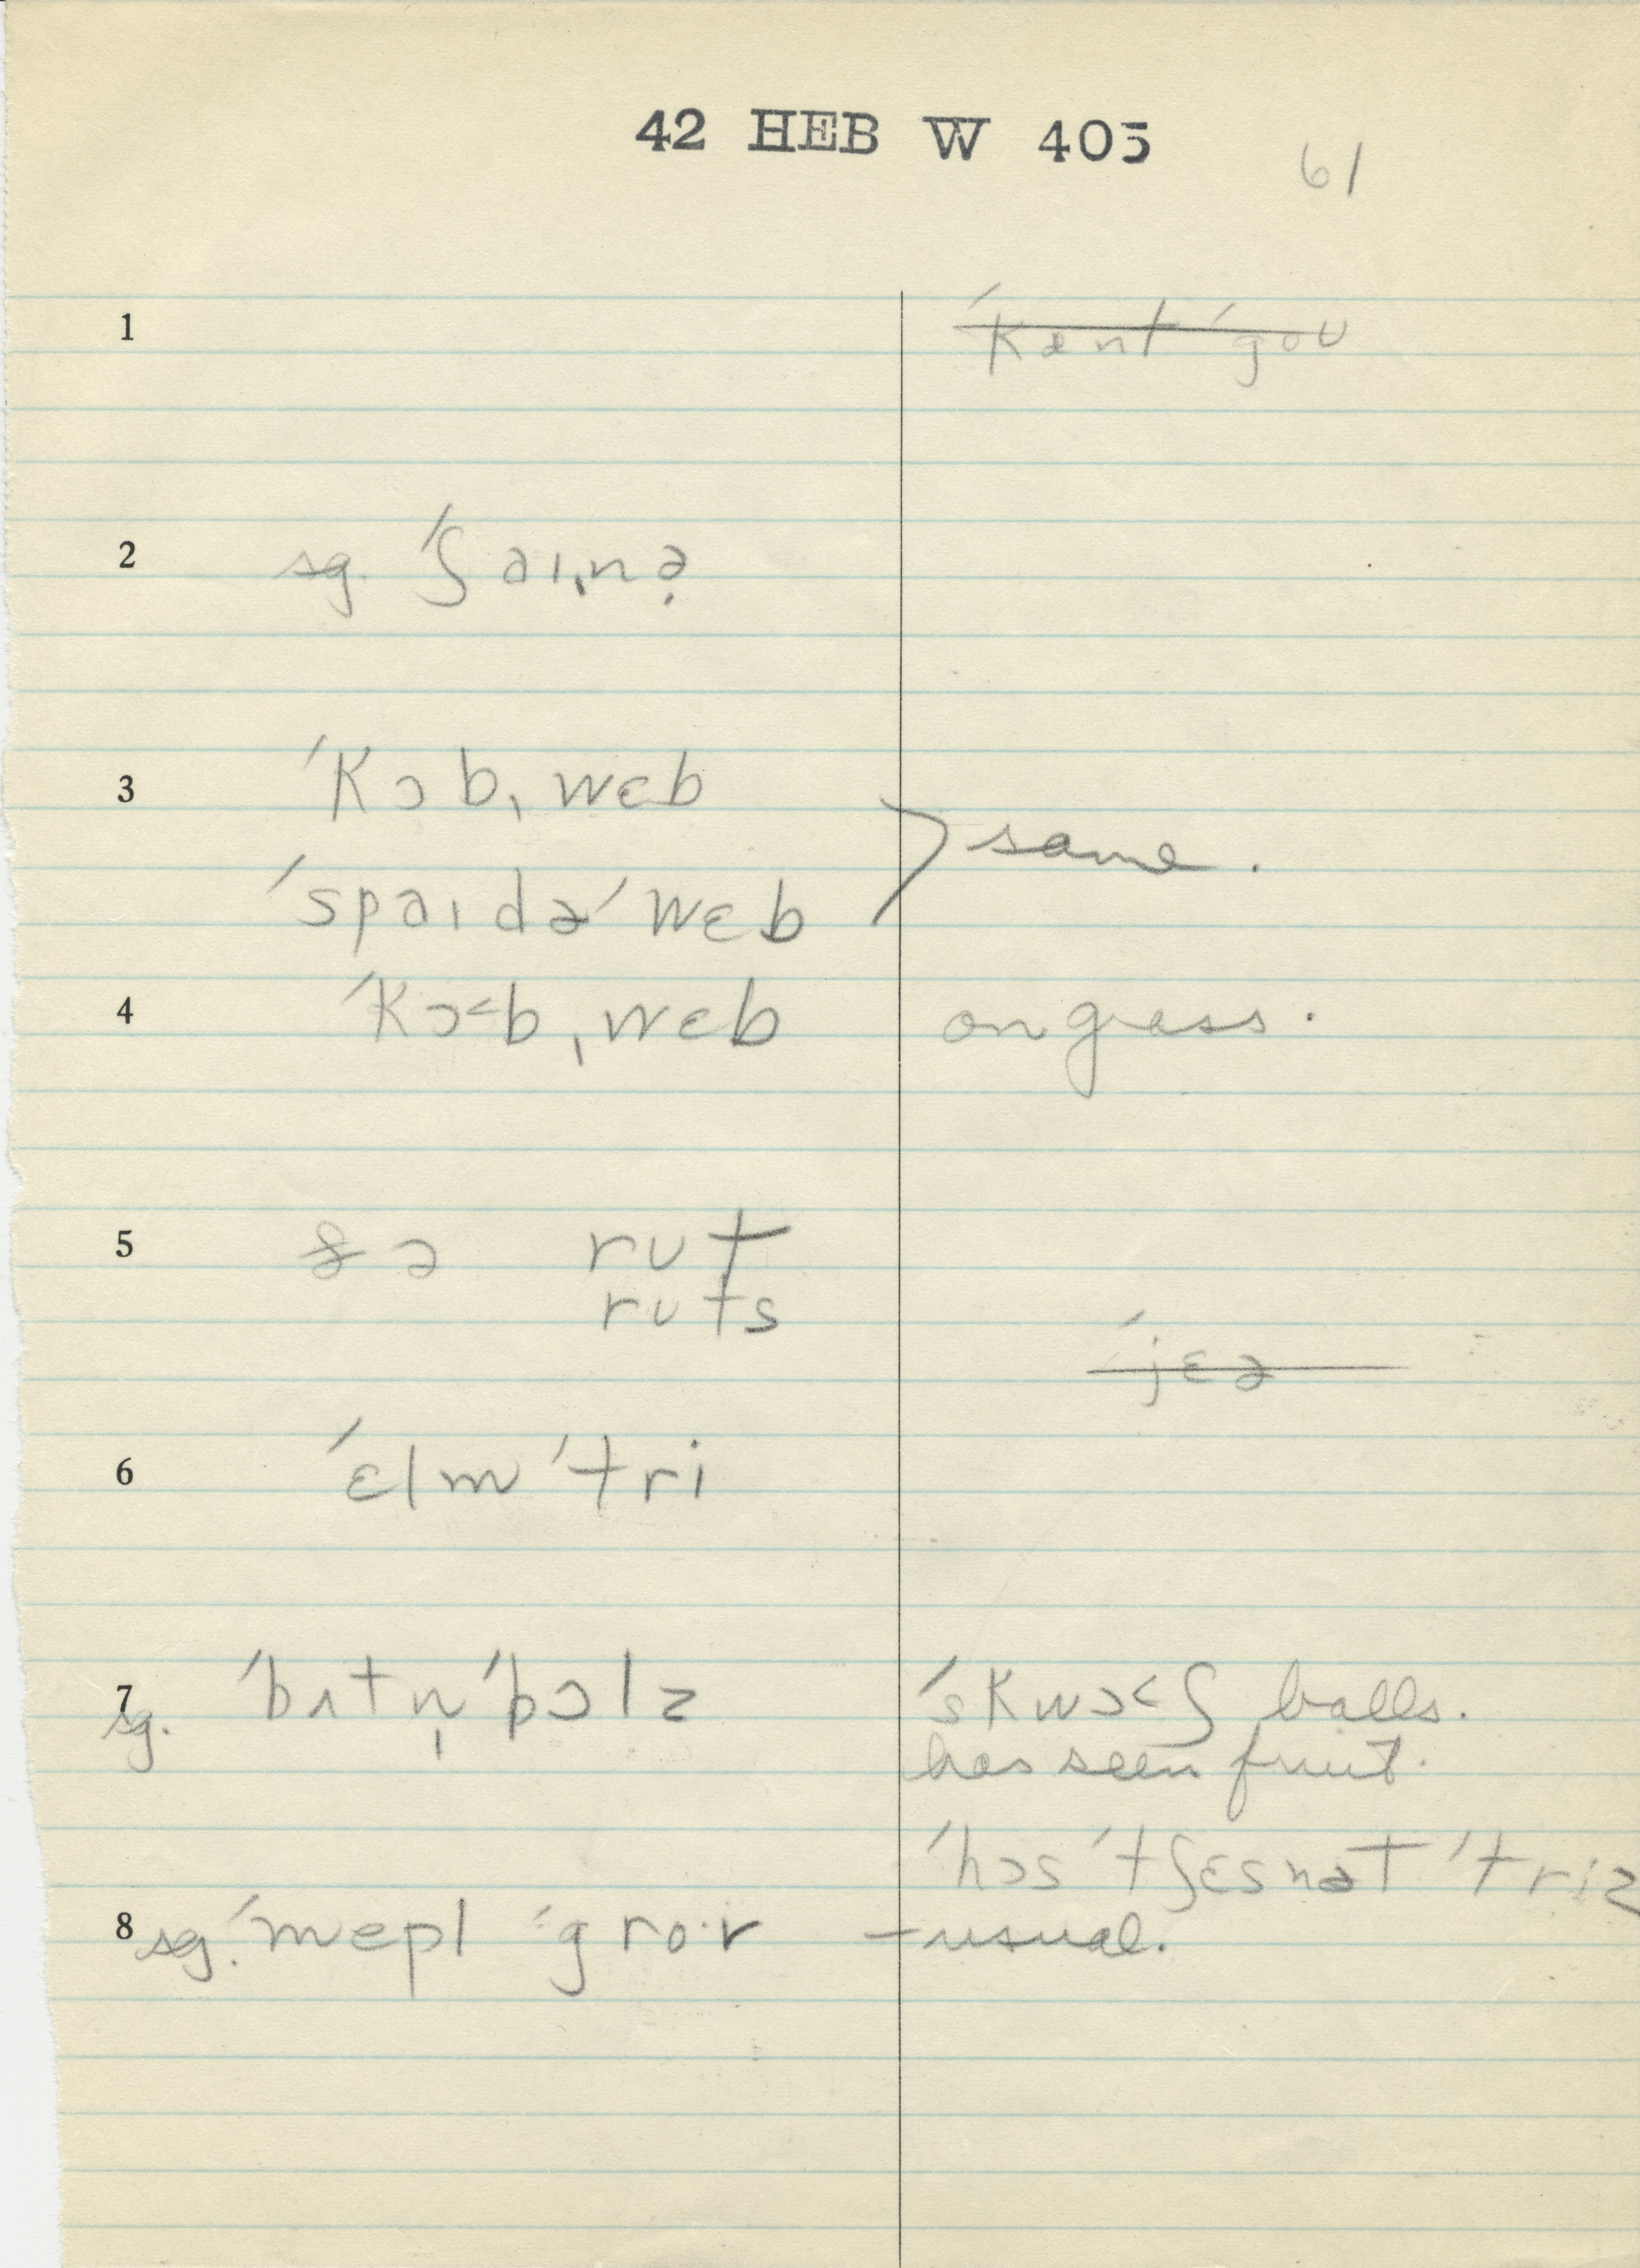 42 HEB W 405
61
1 ˈkænt ˈgoʊ
2 sg. ˈʃaɪˌnə̣
3 ˈkɔbˌwɛb
same.
ˈspaɪdə ˈwɛb
4 ˈkɔ<bˌwɛb on grass.
5 ə rut
ruts
ˈjɛə
6 ˈɛlm ˈtri
7 sg. ˈbʌtn̩ ˈbɔlz ˈskwɔ<ʃ balls.
has seen fruit.
ˈhɔs ˈtʃɛsnət ˈtriz
8 sg. ˈmepl ˈgro·v – usual.